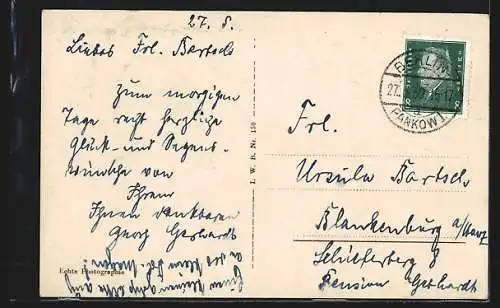 27. 8.
Liebes Frl. Bartsch
Zum morgigen
Tage recht herzliche
Glück- und Segens-
wünsche von
Ihrem
Ihnen dankbaren
Georg Gerhardt
Echte Photographie
L. W. B. Nr. 150
BERLIN
27.
PANKOW 1
8
Frl.
Ursula Bartsch
Blankenburg a/Harz
Schieferberg 8
Pension Gebhardt